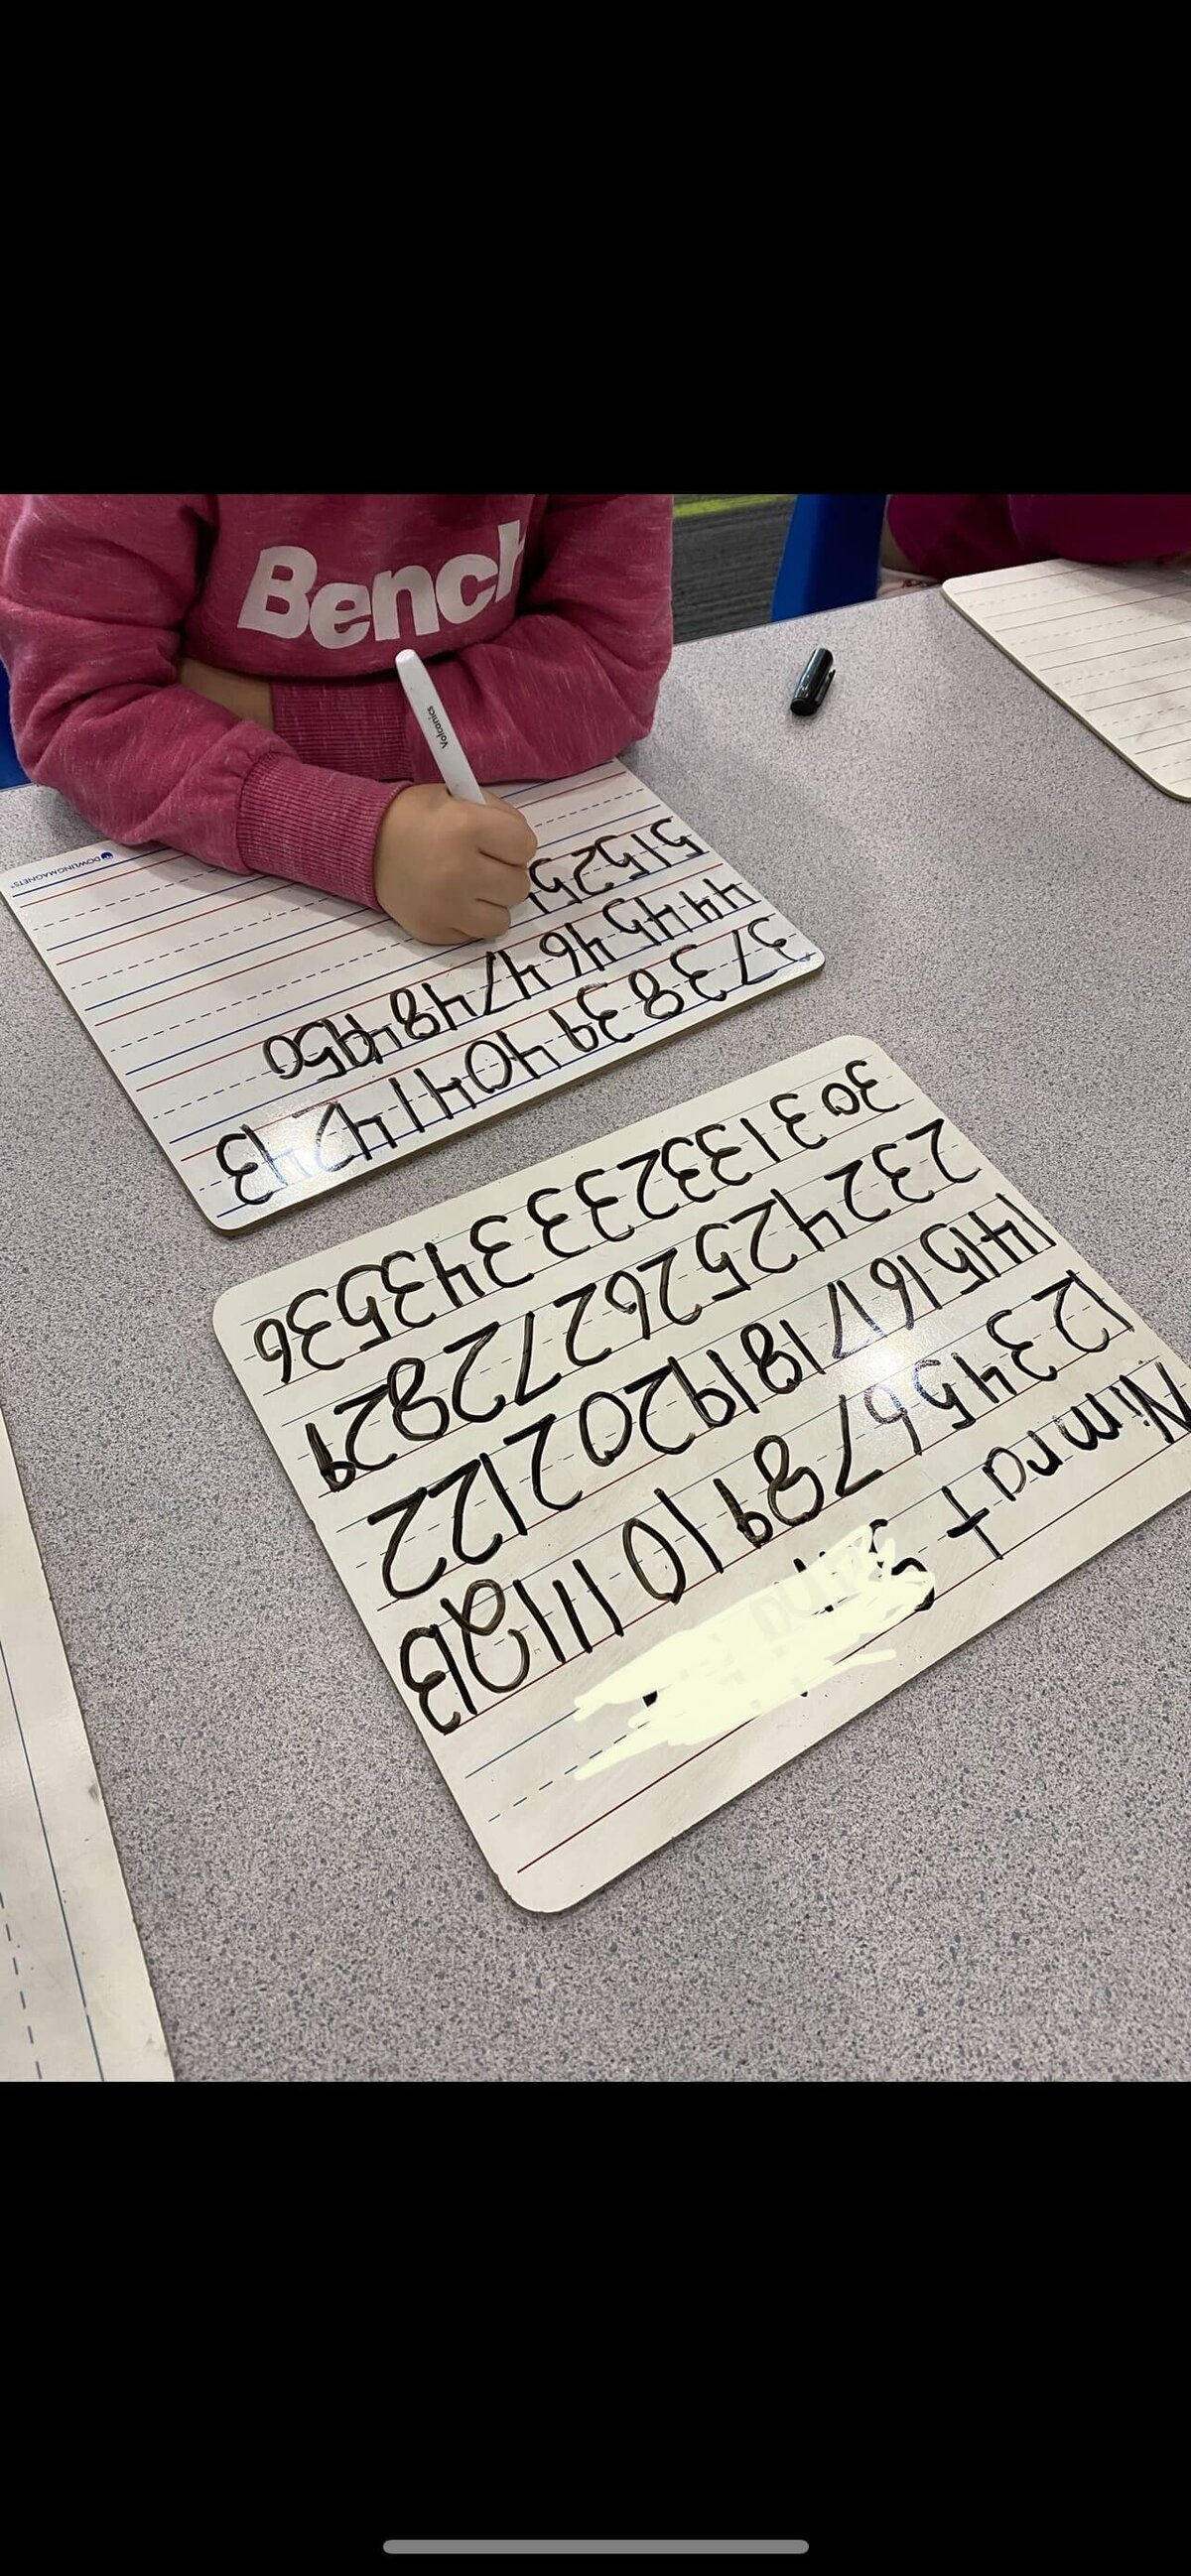 Bench
Volcanics
DOWLINGMAGNETS
Nimrat
1 2 3 4 5 6 7 8 9 10 11 12 13
14 15 16 17 18 19 20 21 22
23 24 25 26 27 28 29
30 31 32 33 34 35 36
37 38 39 40 41 42 43
44 45 46 47 48 49 50
51 52 5